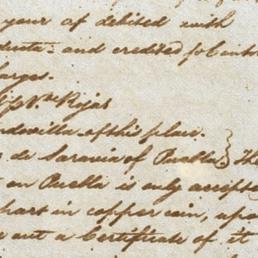 year of debited with
ducts - and credited for
arges.
Rojas
of this place.
de Saravia of Puebla } The
on Puebla is only accepted
part in copper coin, upon
out a Certificate of it